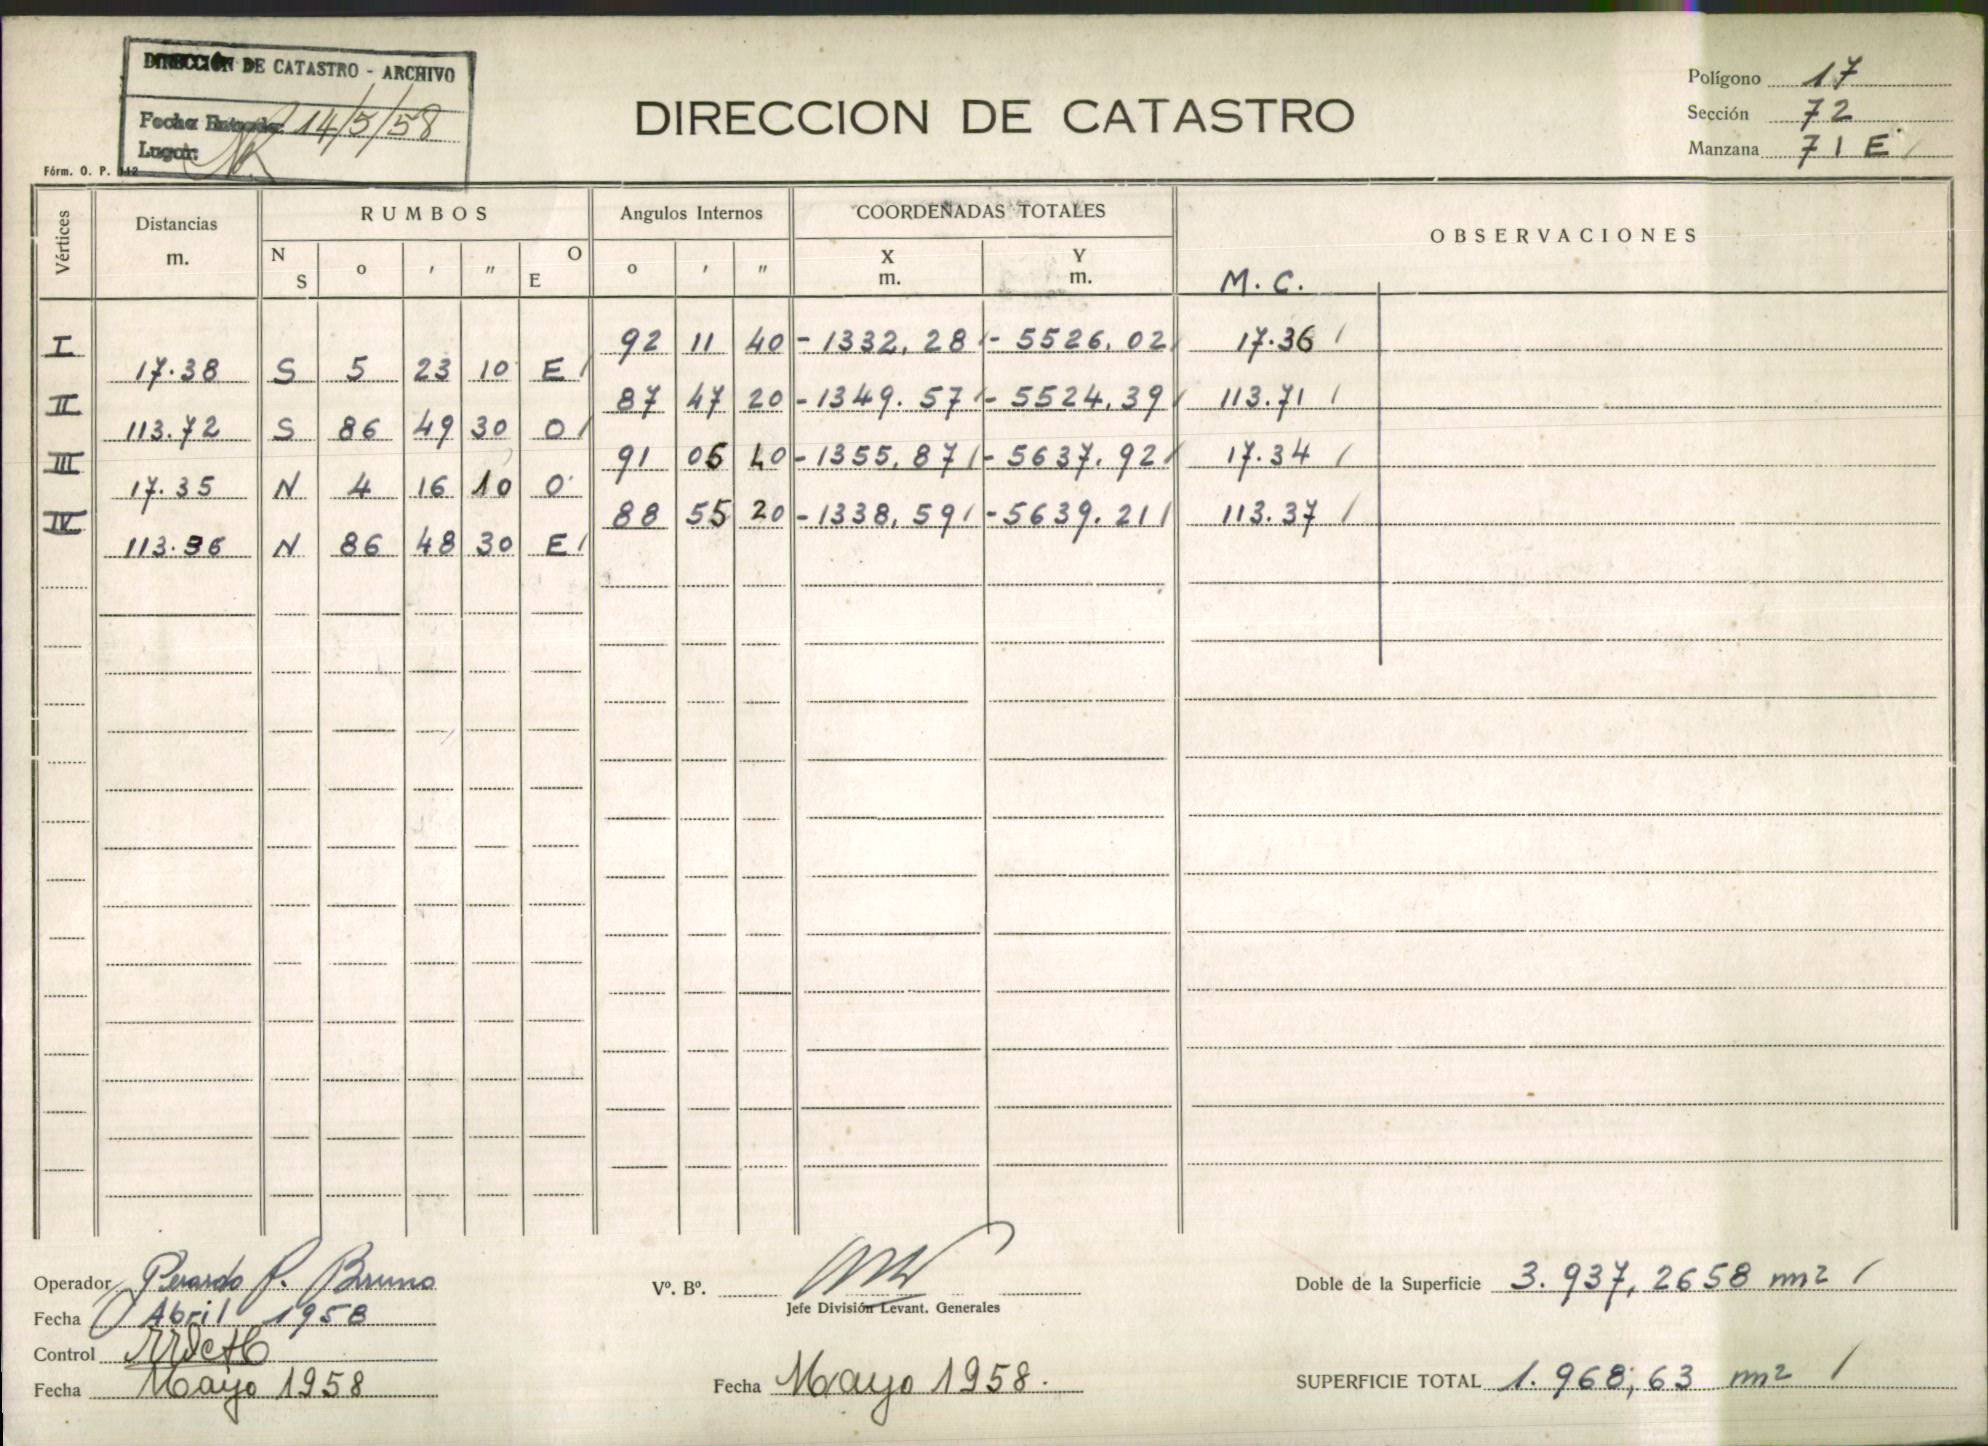 DIRECCIÓN DE CATASTRO - ARCHIVO
Fecha Entrada: 14/5/58
Lugar:
Fórm. O. P. 112
DIRECCION DE CATASTRO
Polígono 17
Sección 72
Manzana 71 E
Vértices
Distancias m.
RUMBOS
N S
o ' "
O E
Angulos Internos
o ' "
COORDENADAS TOTALES
X m.
Y m.
OBSERVACIONES
M. C.
I 92 11 40 - 1332,28 - 5526,02 17.36
17.38 S 5 23 10 E
II 87 47 20 - 1349.57 - 5524,39 113.71
113.72 S 86 49 30 O
III 91 05 40 - 1355,87 - 5637,92 17.34
17.35 N 4 16 10 O
IV 88 55 20 - 1338,59 - 5639.21 113.37
113.36 N 86 48 30 E
Operador P. Bruno
Fecha Abril 1958
Control
Fecha Mayo 1958
Vº. Bº.
Jefe División Levant. Generales
Fecha Mayo 1958.
Doble de la Superficie 3.937,2658 m2
SUPERFICIE TOTAL 1.968,63 m2